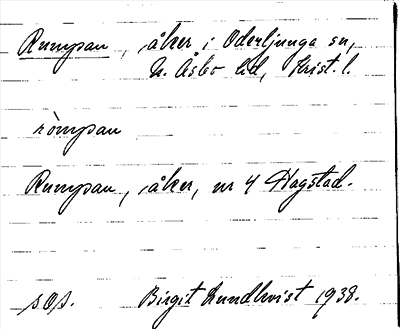 Rumpan, åker i Oderljunga sn,
N. Åsbo hd, Krist. l.
ròmpan
Rumpan, åker, nr 4 Hagstad.
s. Os. Birgit Lundkvist 1938.